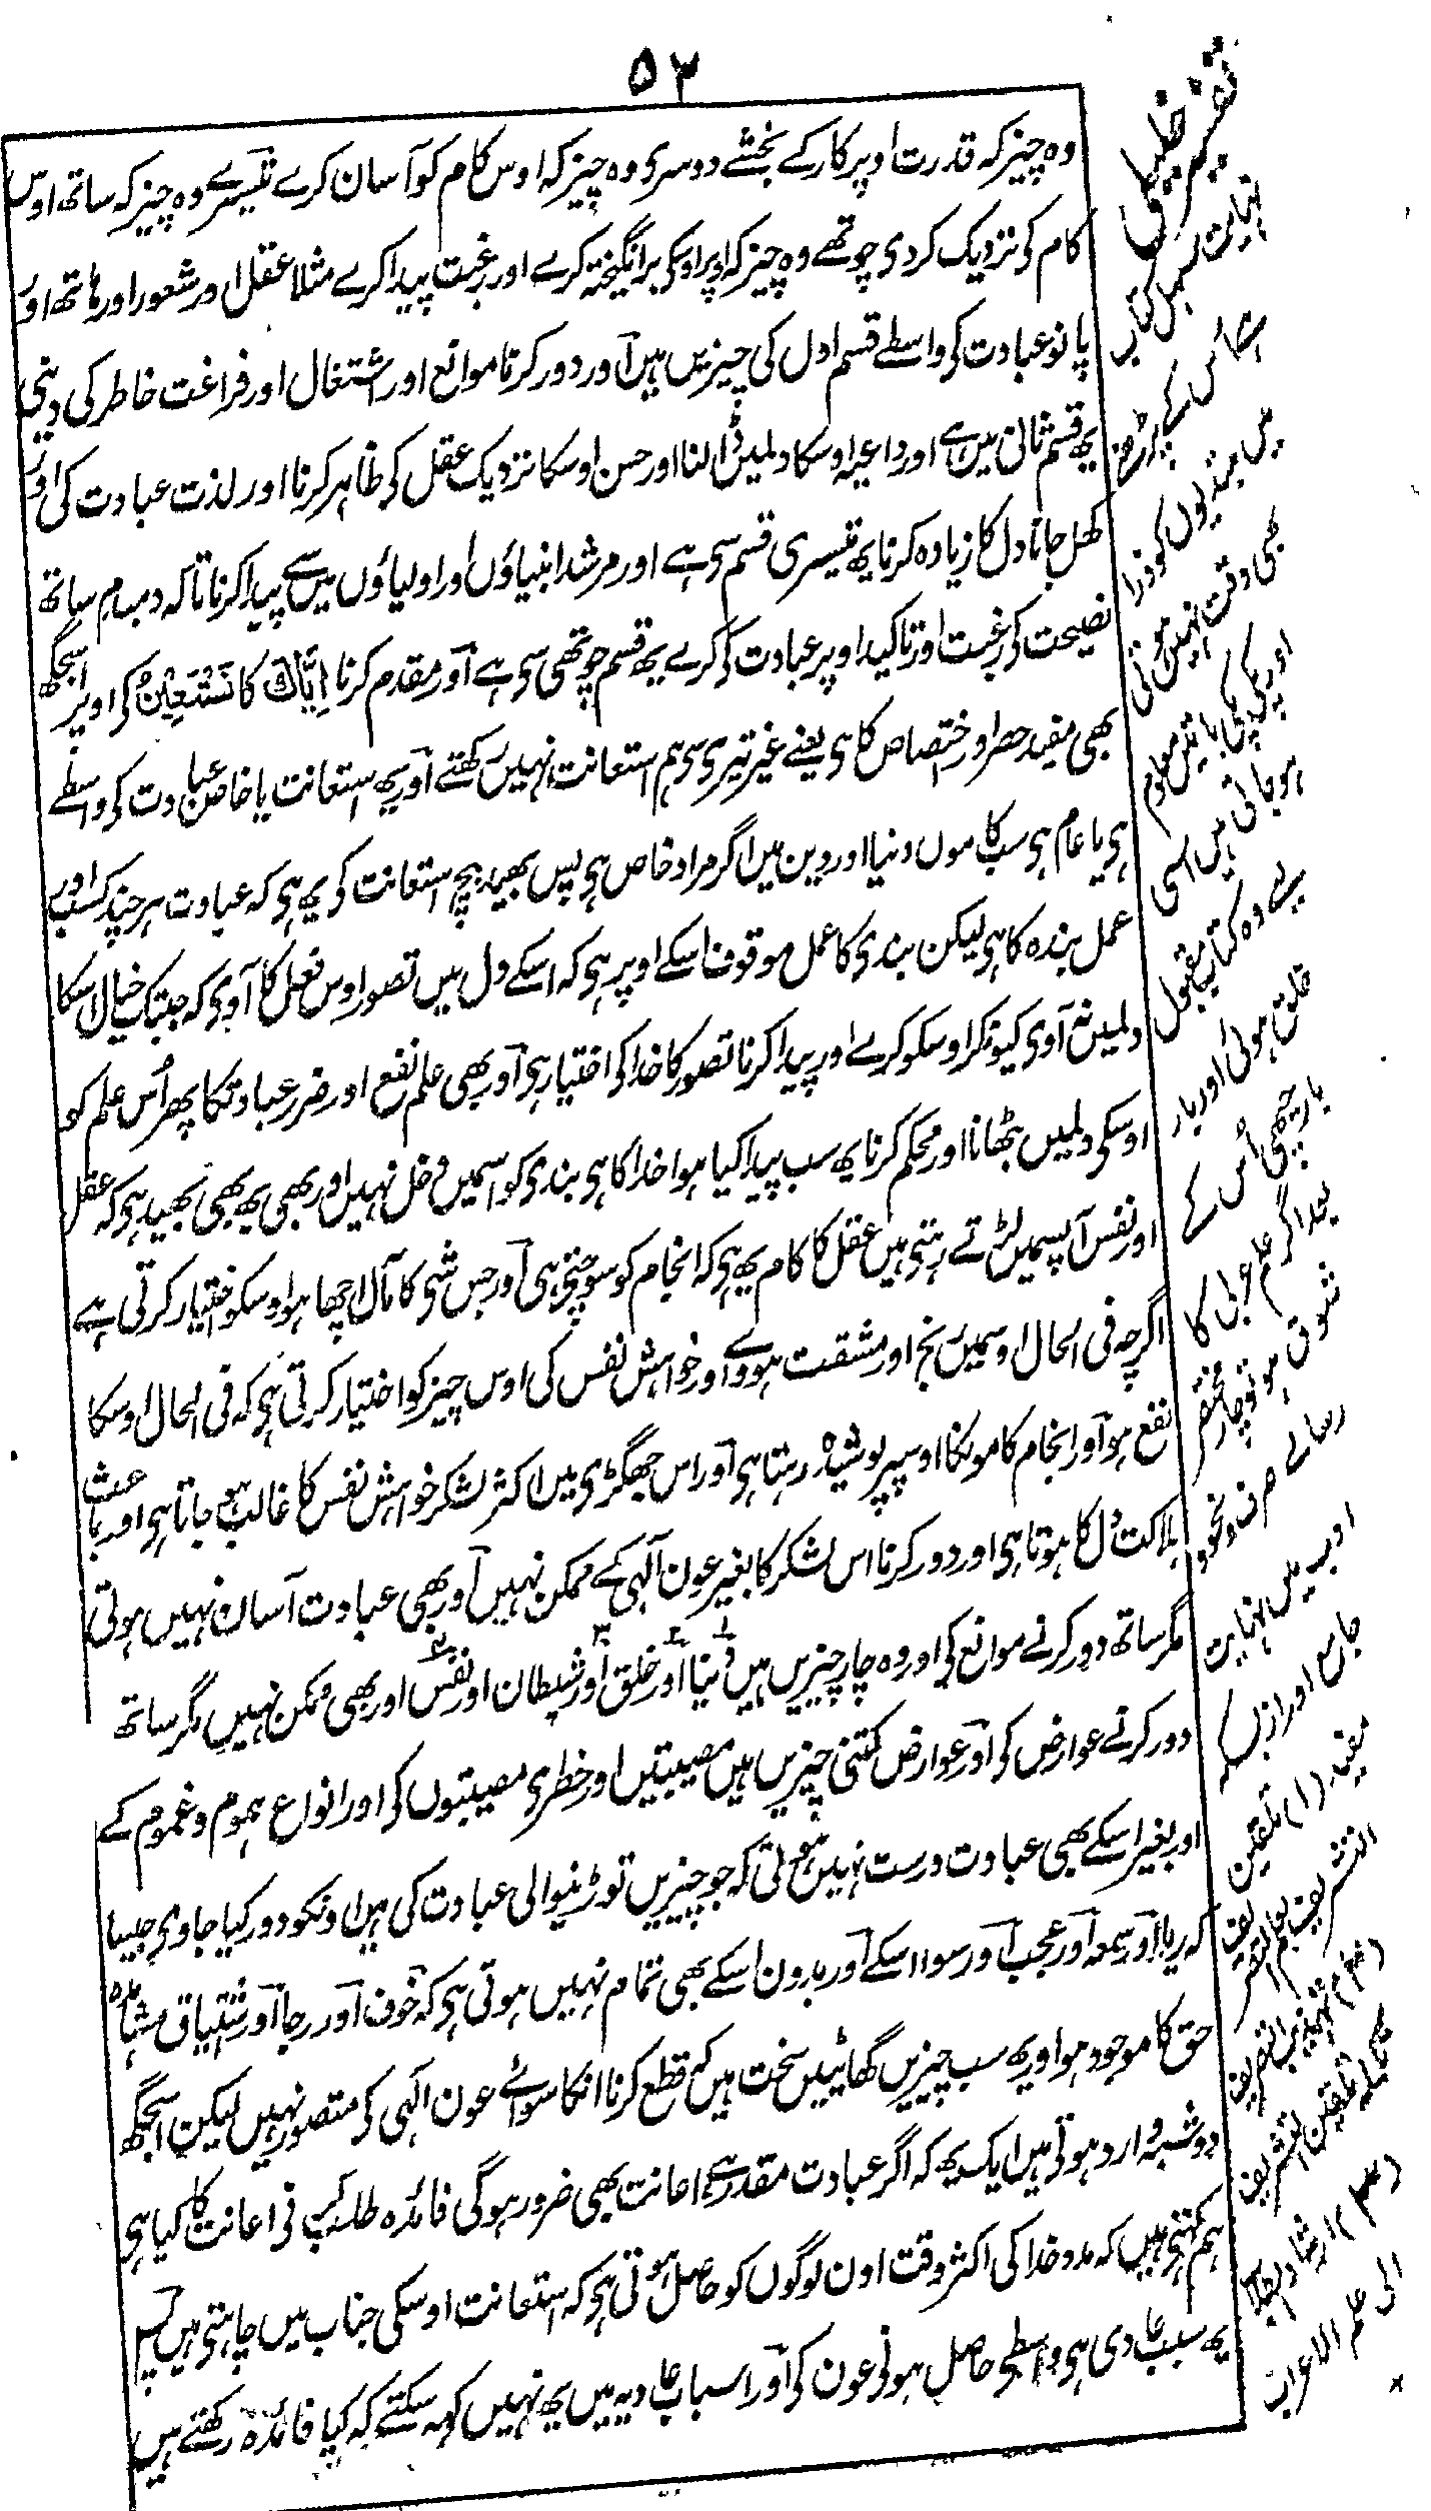 ۵۳
وہ چیز کہ قدرت اوپر کار کے بخشے دوسری وہ چیز کہ اوس کام کو آسان کرے تیسرے وہ چیز کہ ساتھ اوس
کام کی نزدیک کردی چوتھے وہ چیز کہ اوپر اوسکی برانگیختہ کرے اور رغبت پیدا کرے مثلا عقل اور شعور اور ہاتھ اور
پانو عبادت کی واسطے قسم اول کی چیزیں ہیں اور دور کرنا موانع اور اشتغال اور فراغت خاطر کی دینی
یہ قسم ثانی میں ہے اور داعیہ اوسکا دلمیں ڈالنا اور حسن اوسکا نزدیک عقل کی ظاہر کرنا اور لذت عبادت کی اور
کھل جانا دل کا زیادہ کرنا یہ تیسری قسم سی ہے اور مرشد انبیاؤں اور اولیاؤں میں سے پیدا کرنا تاکہ دمبدم ساتھ
نصیحت کی رغبت اور تاکید اوپر عبادت کی کرے یہ قسم چوتھی سی ہے اور مقدم کرنا اِیَّاکَ کا نَسْتَعِیْنُ کی اوپر اسجگھ
بھی مفید حصر اور اختصاص کا ہی یعنے غیر تیری سی ہم استعانت نہیں رکھتے اور یہ استعانت یا خاص عبادت کی واسطے
ہی یا عام ہی سب کاموں دنیا اور دین میں اگر مراد خاص ہی پس بھید بیچ استعانت کی یہ ہی کہ عبادت ہر چند کسب اور
عمل بندہ کا ہی لیکن بندی کا عمل موقوف اسکے اوپر ہی کہ اسکے دل میں تصور اوس فعل کا آوی کہ جبتک خیال اسکا
دلمیں نہ آوی کیونکر اوسکو کرے اور پیدا کرنا تصور کا خدا کی اختیار ہی اور بھی علم نفع اور ضرر عبادتکا پھر اُس علم کو
اوسکی دلمیں بٹھانا اور محکم کرنا یہ سب پیدا کیا ہوا خدا کا ہی بندی کو اسمیں دخل نہیں اور بھی یہ بھی بھید ہی کہ عقل
اور نفس آپسمیں لڑتے رہتی ہیں عقل کا کام یہ ہی کہ انجام کو سوچتی ہی اور جس شی کا مآل اچھا ہو اوسکو اختیار کرتی ہے
اگرچہ فی الحال اوسمیں رنج اور مشقت ہووے اور خواہش نفس کی اوس چیز کو اختیار کرتی ہی کہ فی الحال اوسکا
نفع ہو اور انجام کا ہونگا اوسپر پوشیدہ رہتا ہی اور اس جھگڑی میں اکثر لشکر خواہش نفس کا غالب ہو جاتا ہی اور باعث
ہلاکت دل کا ہوتا ہی اور دور کرنا اس لشکر کا بغیر عون الٰہی کے ممکن نہیں اور بھی عبادت آسان نہیں ہوتی
مگر ساتھ دور کرنے موانع کی اور وہ چار چیزیں ہیں دنیا اور خلق اور شیطان اور نفس اور بھی ممکن نہیں مگر ساتھ
دور کرنے عوارض کو اور عوارض کتنی چیزیں ہیں مصیبتیں اور خطری مصیبتوں کی اور انواع ہموم و غموم کے
اور بغیر اسکے بھی عبادت درست نہیں ہوتی کہ جو چیزیں توڑنیوالی عبادت کی ہیں اونکو دور کیا جاوی جیسا
کہ ریا اور سمعہ اور عجب اور سوا اسکے اور بدون اسکے بھی تمام نہیں ہوتی ہی کہ خوف اور رجا اور اشتیاق مشاہدہ
حق کا موجود ہو اور یہ سب چیزیں گھاٹیاں سخت ہیں کہ قطع کرنا انکا سوائے عون الٰہی کی متصور نہیں لیکن اسجگھ
دو شبہ وارد ہوتی ہیں ایک یہ کہ اگر عبادت مقدر ہے اعانت بھی ضرور ہوگی فائدہ طلب کرنی اعانت کا کیا ہی
ہم کہتی ہیں کہ مدد خدا کی اکثر وقت اون لوگوں کو حاصل ہوتی ہی کہ استعانت اوسکی جناب میں چاہتی ہیں پس
یہ سبب عادی ہی واسطی حاصل ہونی عون کی اور اسباب عادیہ میں یہ نہیں کہہ سکتے کہ کیا فائدہ رکھتے ہیں
نہایت سہل کتاب
اس کے پڑھنے
میں مبتدیوں کو ذرا
بھی دقت نہیں ہوتی
اور پکی پکی باتیں معلوم
ہو جاتی ہیں اسی
لیے وہ کتاب مقبول
خلق ہوئی اور بار
بار چھپی اُس کے
بعد اگر علم عربی کا
شوق ہو تو چار مختصر
رسالے صرف و نحو
اور میں نہایت